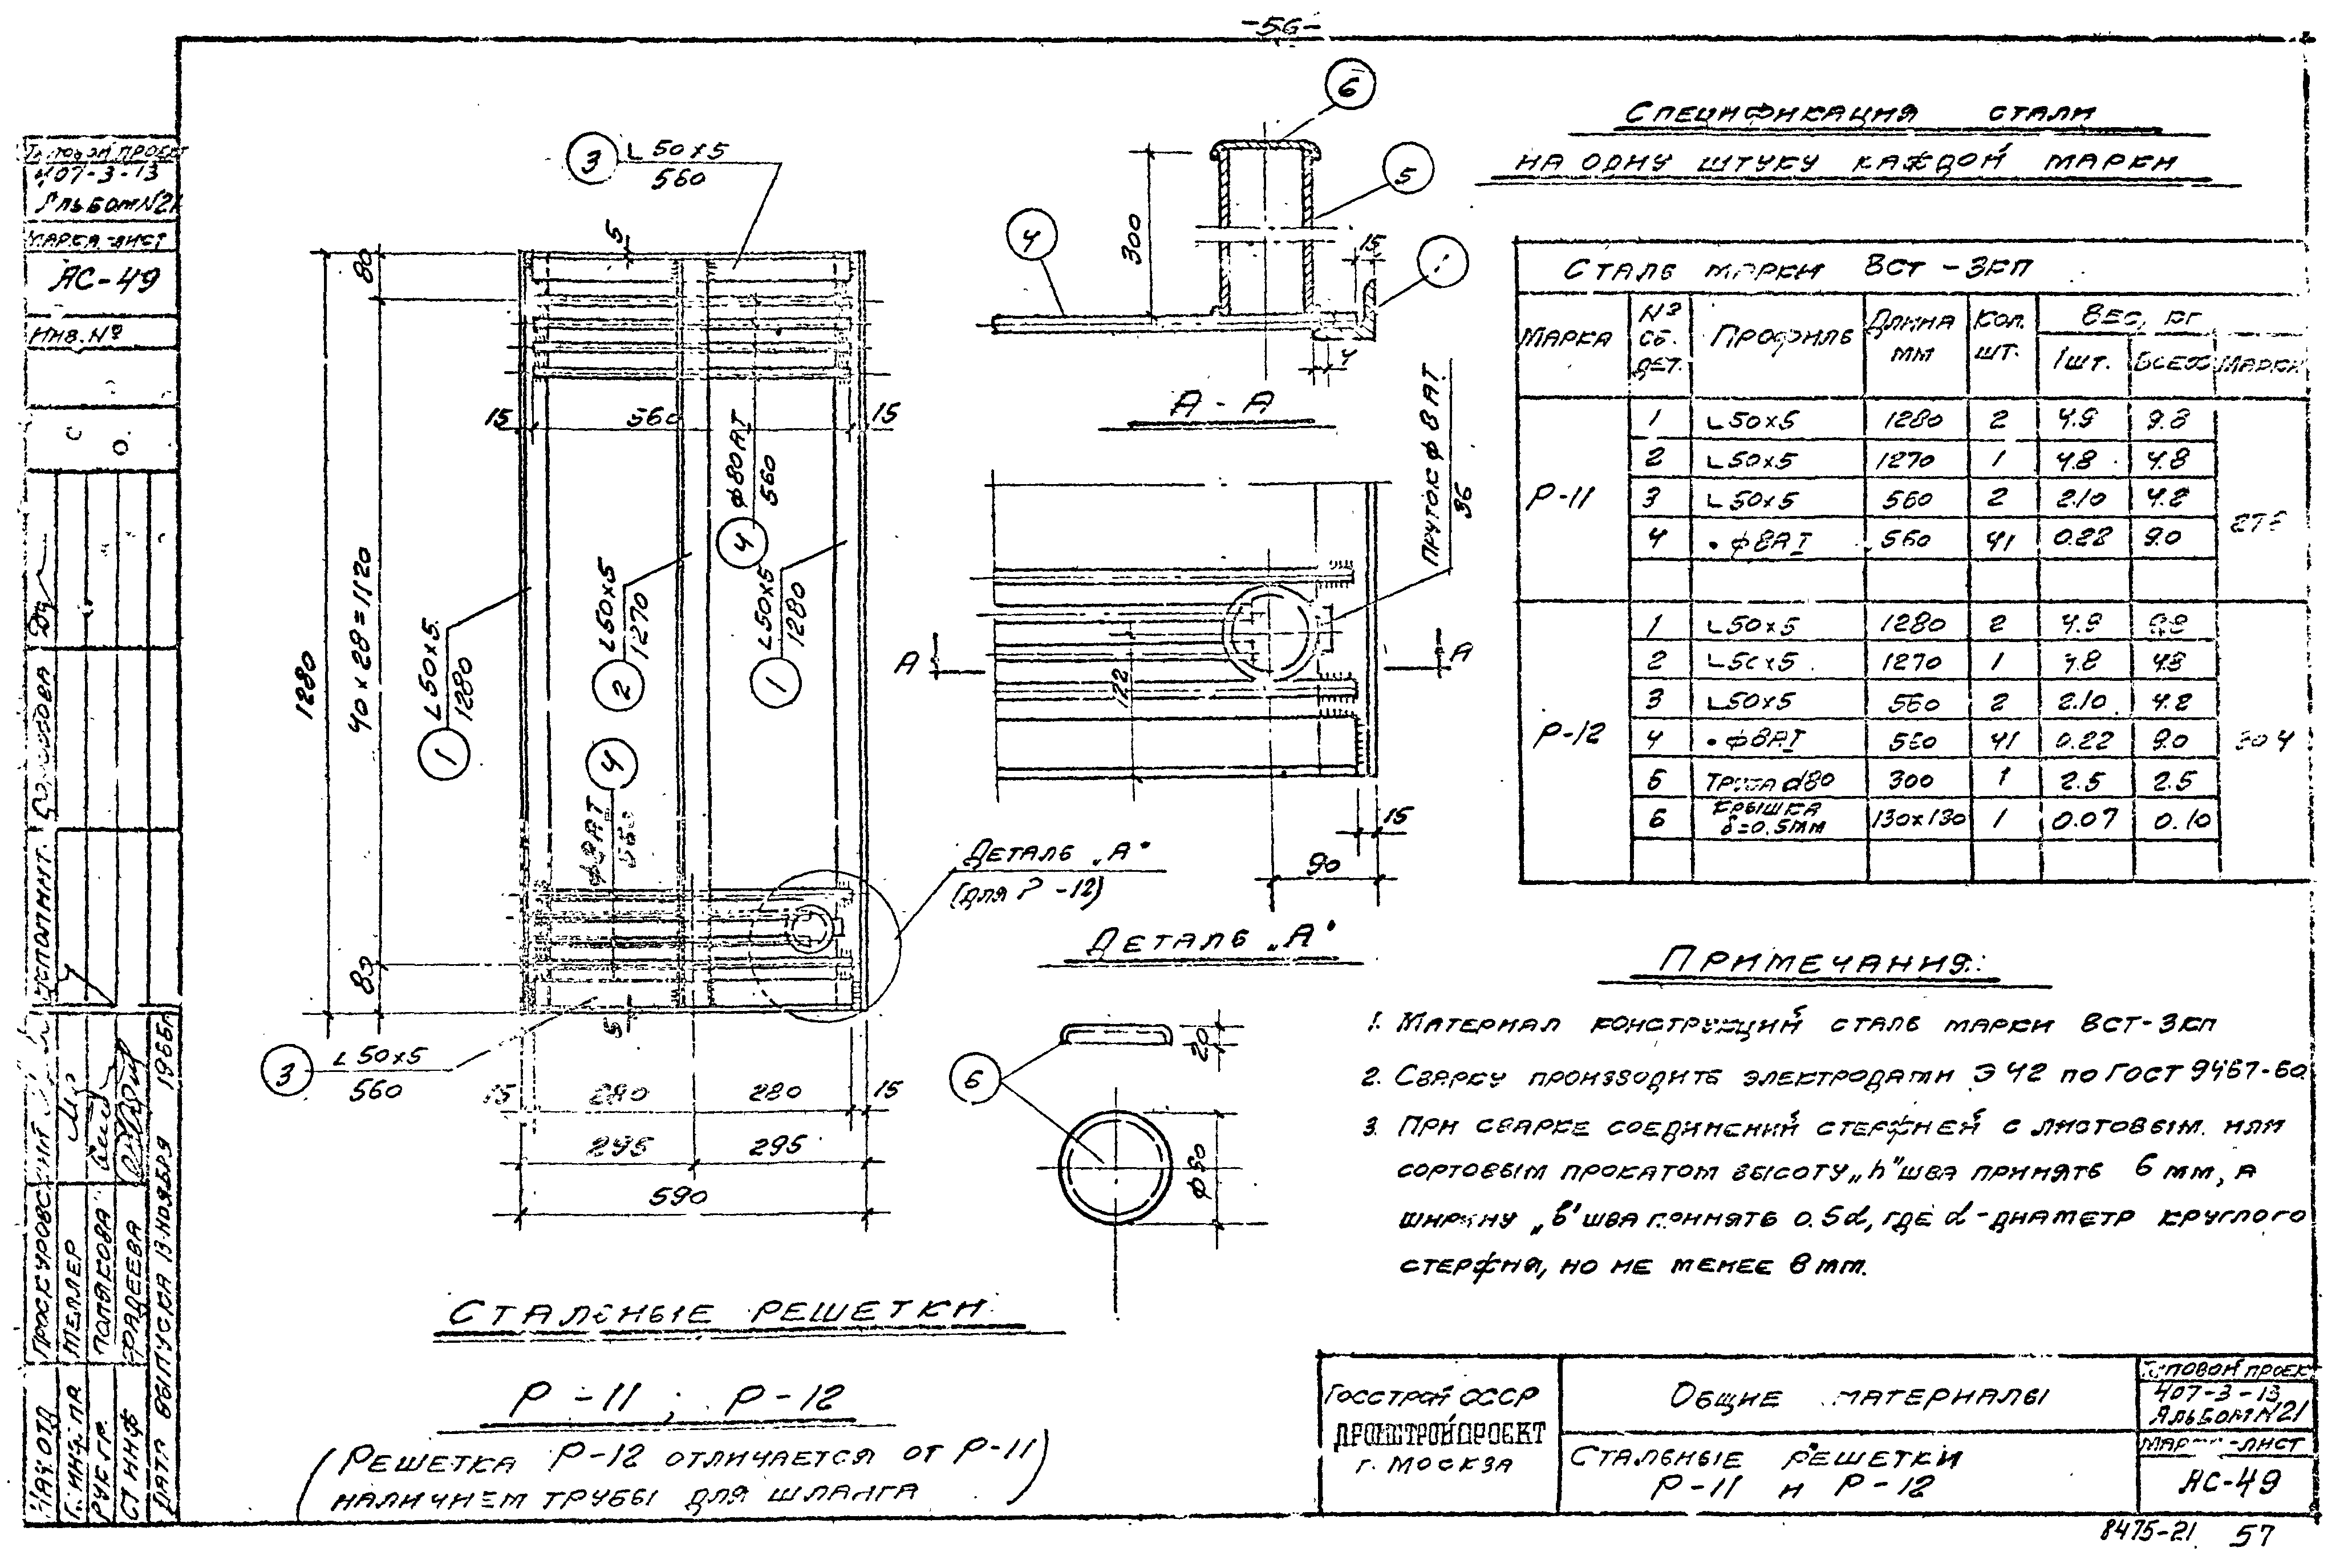 -56-
Типовой проект
407-3-13
Альбом N21
Марка-лист
АС-49
Инв. №
Спецификация стали
на одну штуку каждой марки
Сталь марки ВСт-3кп
Марка | № сб. дет. | Профиль | Длина мм | Кол. шт. | Вес, кг
1шт. | Всех | Марки
Р-11
1 | L50x5 | 1280 | 2 | 4.9 | 9.8
2 | L50x5 | 1270 | 1 | 4.8 | 4.8
3 | L50x5 | 560 | 2 | 2.10 | 4.2
4 | •ф8АI | 560 | 41 | 0.22 | 9.0
Р-12
1 | L50x5 | 1280 | 2 | 4.9 | 9.8
2 | L50x5 | 1270 | 1 | 4.8 | 4.8
3 | L50x5 | 560 | 2 | 2.10 | 4.2
4 | •ф8АI | 560 | 41 | 0.22 | 9.0 | 30.4
5 | Труба d80 | 300 | 1 | 2.5 | 2.5
6 | Крышка δ=0.5мм | 130x130 | 1 | 0.07 | 0.10
3 L50x5
560
5
80
40x28=1120
1280
80
15 560 15
1 L50x5
1280
2 L50x5
1270
4 ф8АI
560
1 L50x5
1280
4 ф8АI
560
5
3 L50x5
560
15 280 280 15
295 295
590
Деталь „А"
(для Р-12)
6
5
4
1
300
15
4
А-А
Пруток ф8АI
36
А А
122
15
90
Деталь „А"
6
20
Примечания:
1. Материал конструкций сталь марки ВСт-3кп
2. Сварку производить электродами Э42 по ГОСТ 9467-60.
3. При сварке соединений стержней с листовым или
сортовым прокатом высоту „h" шва принять 6 мм, а
ширину „в" шва принять 0.5d, где d-диаметр круглого
стержня, но не менее 8мм.
Стальные решетки
Р-11; Р-12
(Решетка Р-12 отличается от Р-11
наличием трубы для шланга)
Госстрой СССР
Промстройпроект
г. Москва
Общие материалы
Стальные решетки
Р-11 и Р-12
Типовой проект
407-3-13
Альбом N21
Марка-лист
АС-49
8475-21 57
Нач. отд. Проскуровский
Гл. инж. пр. Меллер
Рук. гр. Полякова
Ст. инж. Фадеева
Исполнит.
Дата выпуска 13 ноября